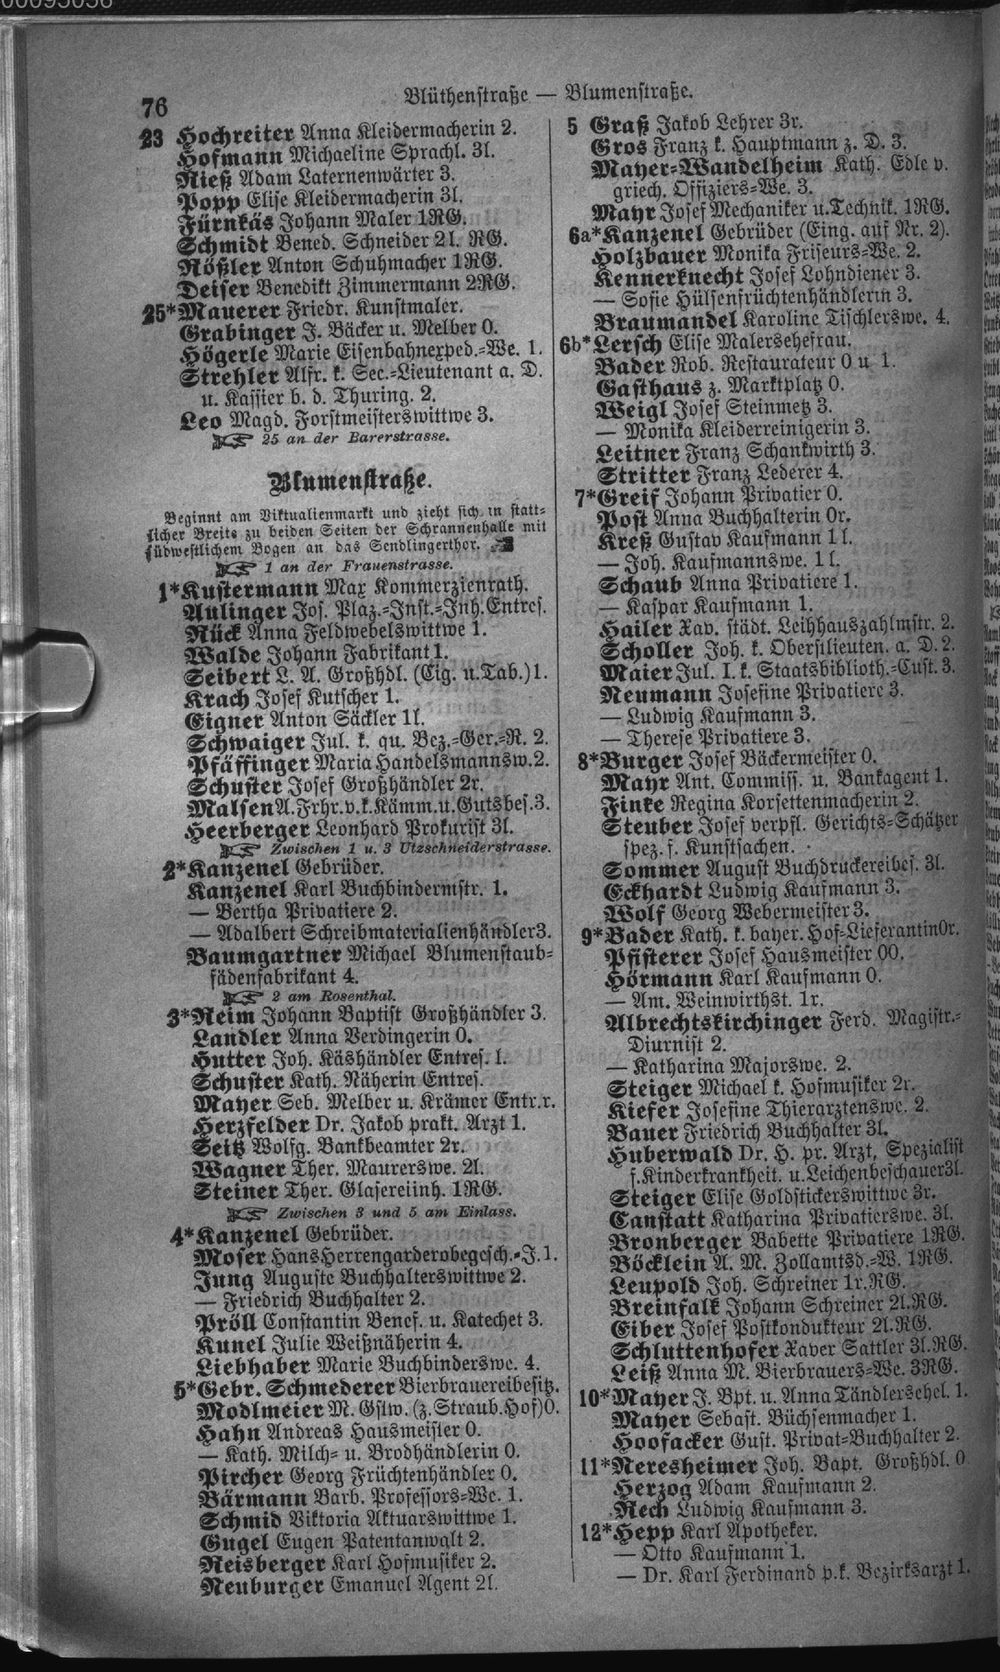 76
Blüthenstraße — Blumenstraße.
23 Hochreiter Anna Kleidermacherin 2.
Hofmann Michaeline Sprachl. 3l.
Rieß Adam Laternenwärter 3.
Popp Elise Kleidermacherin 3l.
Fürnkäs Johann Maler 1RG.
Schmidt Bened. Schneider 2l. RG.
Rößler Anton Schuhmacher 1RG.
Deiser Benedikt Zimmermann 2RG.
25*Mauerer Friedr. Kunstmaler.
Grabinger J. Bäcker u. Melber 0.
Högerle Marie Eisenbahnexped.=We. 1.
Strehler Alfr. k. Sec.=Lieutenant a. D.
u. Kassier b. d. Thuring. 2.
Leo Magd. Forstmeisterswittwe 3.
☞ 25 an der Barerstrasse.
Blumenstraße.
Beginnt am Viktualienmarkt und zieht sich in statt=
licher Breite zu beiden Seiten der Schrannenhalle mit
südwestlichem Bogen an das Sendlingerthor.
☞ 1 an der Frauenstrasse.
1*Kustermann Max Kommerzienrath.
Aulinger Jos. Plaz.=Inst.=Inh. Entres.
Rück Anna Feldwebelswittwe 1.
Walde Johann Fabrikant 1.
Seibert L. A. Großhdl. (Cig. u. Tab.) 1.
Krach Josef Kutscher 1.
Eigner Anton Säckler 1l.
Schwaiger Jul. k. qu. Bez.=Ger.=R. 2.
Pfäffinger Maria Handelsmannsw. 2.
Schuster Josef Großhändler 2r.
Malsen A. Frhr. v. k. Kämm. u. Gutsbes. 3.
Heerberger Leonhard Prokurist 3l.
☞ Zwischen 1 u. 3 Utzschneiderstrasse.
2*Kanzenel Gebrüder.
Kanzenel Karl Buchbindermstr. 1.
— Bertha Privatiere 2.
— Adalbert Schreibmaterialienhändler 3.
Baumgartner Michael Blumenstaub=
fädenfabrikant 4.
☞ 2 am Rosenthal.
3*Reim Johann Baptist Großhändler 3.
Landler Anna Verdingerin 0.
Hutter Joh. Käshändler Entres. l.
Schuster Kath. Näherin Entres.
Mayer Seb. Melber u. Krämer Entr. r.
Herzfelder Dr. Jakob prakt. Arzt 1.
Seitz Wolfg. Bankbeamter 2r.
Wagner Ther. Maurerswe. 2l.
Steiner Ther. Glasereiinh. 1RG.
☞ Zwischen 3 und 5 am Einlass.
4*Kanzenel Gebrüder.
Moser Hans Herrengarderobegesch.=J. 1.
Jung Auguste Buchhalterswittwe 2.
— Friedrich Buchhalter 2.
Pröll Constantin Benef. u. Katechet 3.
Kunel Julie Weißnäherin 4.
Liebhaber Marie Buchbinderswe. 4.
5*Gebr. Schmederer Bierbrauereibesitz.
Modlmeier M. Gstw. (z. Straub. Hof) 0.
Hahn Andreas Hausmeister 0.
— Kath. Milch= u. Brodhändlerin 0.
Pircher Georg Früchtenhändler 0.
Bärmann Barb. Professors=We. 1.
Schmid Viktoria Aktuarswittwe 1.
Gugel Eugen Patentanwalt 2.
Reisberger Karl Hofmusiker 2.
Neuburger Emanuel Agent 2l.
5 Graß Jakob Lehrer 3r.
Gros Franz k. Hauptmann z. D. 3.
Mayer=Wandelheim Kath. Edle v.
griech. Offiziers=We. 3.
Mayr Josef Mechaniker u. Technik. 1RG.
6a*Kanzenel Gebrüder (Eing. auf Nr. 2).
Holzbauer Monika Friseurs=We. 2.
Kennerknecht Josef Lohndiener 3.
— Sofie Hülsenfrüchtenhändlerin 3.
Braumandel Karoline Tischlerswe. 4.
6b*Lersch Elise Malersehefrau.
Bader Rob. Restaurateur 0 u 1.
Gasthaus z. Marktplatz 0.
Weigl Josef Steinmetz 3.
— Monika Kleiderreinigerin 3.
Leitner Franz Schankwirth 3.
Stritter Franz Lederer 4.
7*Greif Johann Privatier 0.
Post Anna Buchhalterin 0r.
Kreß Gustav Kaufmann 1l.
— Joh. Kaufmannswe. 1l.
Schaub Anna Privatiere 1.
— Kaspar Kaufmann 1.
Hailer Xav. städt. Leihhauszahlmstr. 2.
Scholler Joh. k. Oberstlieuten. a. D. 2.
Maier Jul. I. k. Staatsbiblioth.=Cust. 3.
Neumann Josefine Privatiere 3.
— Ludwig Kaufmann 3.
— Therese Privatiere 3.
8*Burger Josef Bäckermeister 0.
Mayr Ant. Commiss. u. Bankagent 1.
Finke Regina Korsettenmacherin 2.
Steuber Josef verpfl. Gerichts=Schätzer
spez. f. Kunstsachen.
Sommer August Buchdruckereibes. 3l.
Eckhardt Ludwig Kaufmann 3.
Wolf Georg Webermeister 3.
9*Bader Kath. k. bayer. Hof=Lieferantin 0r.
Pfisterer Josef Hausmeister 00.
Hörmann Karl Kaufmann 0.
— Am. Weinwirthst. 1r.
Albrechtskirchinger Ferd. Magistr.=
Diurnist 2.
— Katharina Majorswe. 2.
Steiger Michael k. Hofmusiker 2r.
Kiefer Josefine Thierarztenswe. 2.
Bauer Friedrich Buchhalter 3l.
Huberwald Dr. H. pr. Arzt, Spezialist
f. Kinderkrankheit. u. Leichenbeschauer 3l.
Steiger Elise Goldstickerswittwe 3r.
Canstatt Katharina Privatierswe. 3l.
Bronberger Babette Privatiere 1RG.
Böcklein A. M. Zollamtsd.=W. 1RG.
Leupold Joh. Schreiner 1r. RG.
Breinfalk Johann Schreiner 2l. RG.
Eiber Josef Postkondukteur 2l. RG.
Schluttenhofer Xaver Sattler 3l. RG.
Leiß Anna M. Bierbrauers=We. 3RG.
10*Mayer J. Bpt. u. Anna Tändlersehel. 1.
Mayer Sebast. Büchsenmacher 1.
Hoofacker Gust. Privat=Buchhalter 2.
11*Neresheimer Joh. Bapt. Großhdl. 0
Herzog Adam Kaufmann 2.
Rech Ludwig Kaufmann 3.
12*Hepp Karl Apotheker.
— Otto Kaufmann 1.
— Dr. Karl Ferdinand p. k. Bezirksarzt 1.